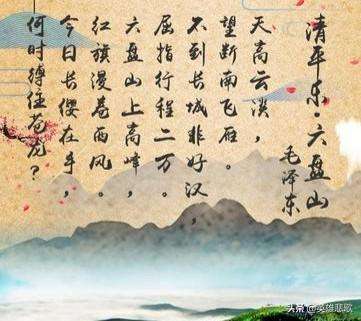 清平乐·六盘山
毛泽东
天高云淡，
望断南飞雁。
不到长城非好汉，
屈指行程二万。
六盘山上高峰，
红旗漫卷西风。
今日长缨在手，
何时缚住苍龙？
头条 @英雄悲歌